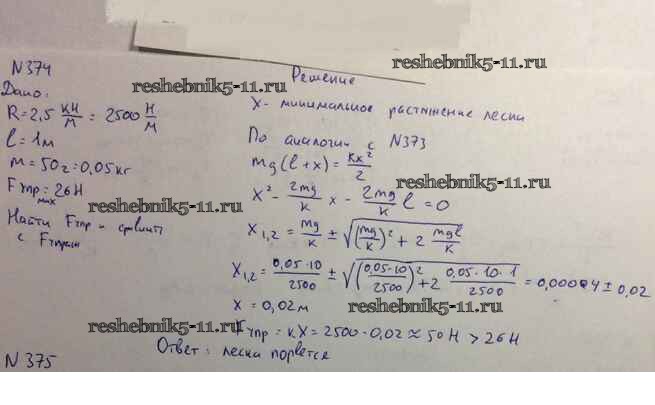 N 374
Дано:
k = 2,5 кН/м = 2500 Н/м
l = 1м
m = 50г = 0,05кг
Fупр max = 26Н
Найти Fупр и сравнить с Fупрmax
Решение
x - минимальное растяжение лески
По аналогии с N373
mg(l+x) = kx²/2
x² - 2mg/k x - 2mg/k l = 0
x1,2 = mg/k ± √((mg/k)² + 2 mgl/k)
x1,2 = 0,05·10/2500 ± √((0,05·10/2500)² + 2 0,05·10·1/2500) = ± 0,02
x = 0,02м
Fупр = kx = 2500·0,02 ≈ 50Н > 26Н
Ответ: леска порвется
N 375
reshebnik5-11.ru
reshebnik5-11.ru
reshebnik5-11.ru
reshebnik5-11.ru
reshebnik5-11.ru
reshebnik5-11.ru